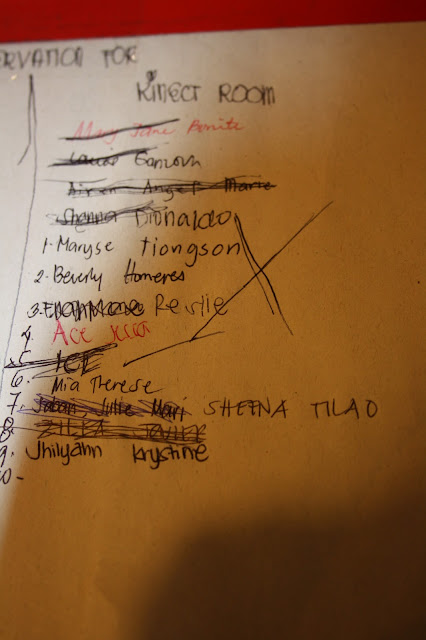 RVATION FOR
KINECT ROOM
Mary Jane Bonita
Airen Angel Marie
Shanna Dionaldo
1. Maryse Tiongson
2. Beverly Homeres
3. Reslie
4. Ace
5. ICE
6. Mia Therese
7. Julie Mari SHEENA TILAO
8.
9. Jhilyahn Krystine
0-